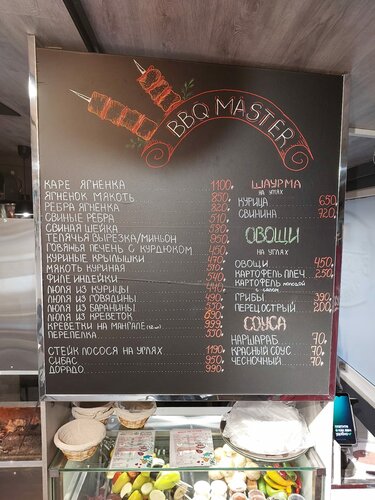 BBQ MASTER
КАРЕ ЯГНЕНКА 1100₽
ЯГНЕНОК МЯКОТЬ 850₽
РЕБРА ЯГНЕНКА 820₽
СВИНЫЕ РЕБРА 510₽
СВИНАЯ ШЕЙКА 580₽
ТЕЛЯЧЬЯ ВЫРЕЗКА/МИНЬОН 950₽
ГОВЯНЬЯ ПЕЧЕНЬ С КУРДЮКОМ 450₽
КУРИНЫЕ КРЫЛЫШКИ 470₽
МЯКОТЬ КУРИНАЯ 510₽
ФИЛЕ ИНДЕЙКИ 540₽
ЛЮЛЯ ИЗ КУРИЦЫ 440₽
ЛЮЛЯ ИЗ ГОВЯДИНЫ 490₽
ЛЮЛЯ ИЗ БАРАНИНЫ
ЛЮЛЯ ИЗ КРЕВЕТОК 690₽
КРЕВЕТКИ НА МАНГАЛЕ 999₽
ПЕРЕПЕЛКА
СТЕЙК ЛОСОСЯ НА УГЛЯХ 1190₽
СИБАС 950₽
ДОРАДО 990₽
ШАУРМА
НА УГЛЯХ
КУРИЦА 650₽
СВИНИНА 720₽
ОВОЩИ
НА УГЛЯХ
ОВОЩИ 450₽
КАРТОФЕЛЬ ПЛЕЧ. 250₽
КАРТОФЕЛЬ МОЛОДОЙ
С САЛОМ
ГРИБЫ 390₽
ПЕРЕЦ ОСТРЫЙ 200₽
СОУСА
НАРШАРАБ 70₽
КРАСНЫЙ СОУС 70₽
ЧЕСНОЧНЫЙ 70₽